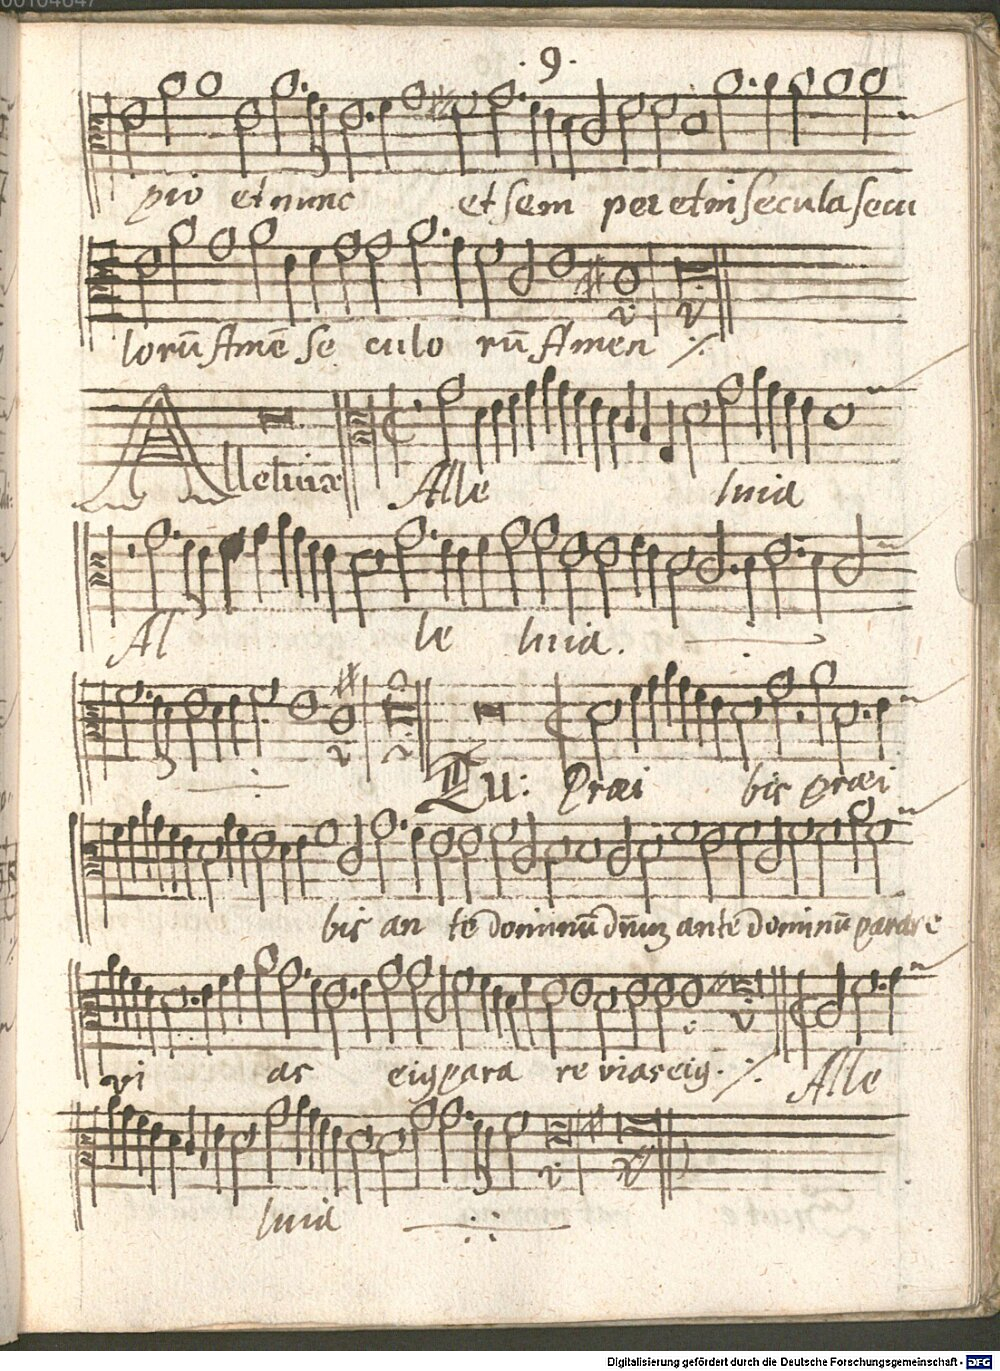 00104647
. 9 .
pio et nunc et sem per et in secula secu
lorū Amē se culo rū Amen ⁒
Alleluia Alle luia
Al le luia.
Tu: Præi bis præi
bis an te dominū dn̄m ante dominū parare
vi as eiꝰ para re vias eiꝰ. ⁒ Alle
luia
Digitalisierung gefördert durch die Deutsche Forschungsgemeinschaft - DFG